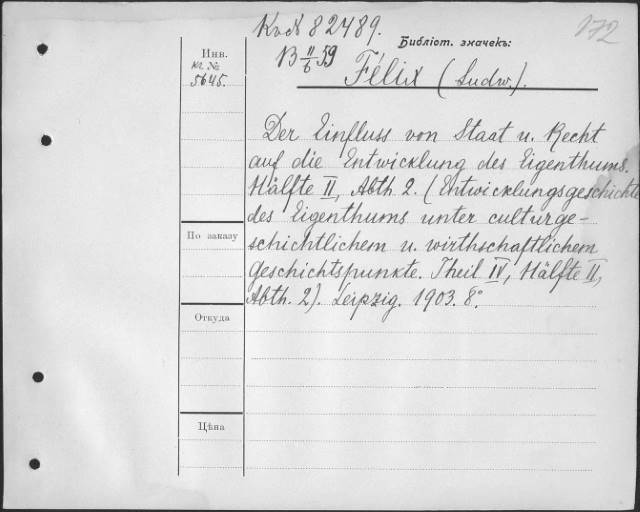 Kv№ 82489.
172
Библіот. значекъ:
B II/6 59
Инв.
кг. №
5645.
Félix (Ludw.).
Der Einfluss von Staat u. Recht
auf die Entwicklung des Eigenthums.
Hälfte II, Abth. 2. (Entwicklungsgeschichte
des Eigenthums unter culturge-
schichtlichem u. wirthschaftlichem
Geschichtspunkte. Theil IV, Hälfte II,
Abth. 2). Leipzig. 1903. 8°.
По заказу
Откуда
Цѣна